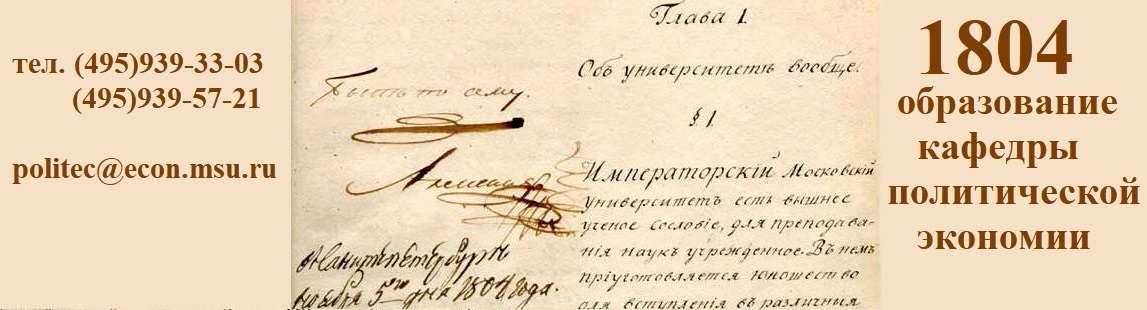 тел. (495)939-33-03
(495)939-57-21
politec@econ.msu.ru
Быть по сему.
Александръ
въ Санктпетербургѣ
ноября 5го дня 1804 года.
Глава 1.
Объ университетѣ вообще.
§ 1.
Императорскій Московскій
университетъ есть вышнее
ученое сословіе, для преподава-
нія наукъ учрежденное. Въ немъ
пріуготовляется юношество
для вступленія въ различныя
1804
образование
кафедры
политической
экономии